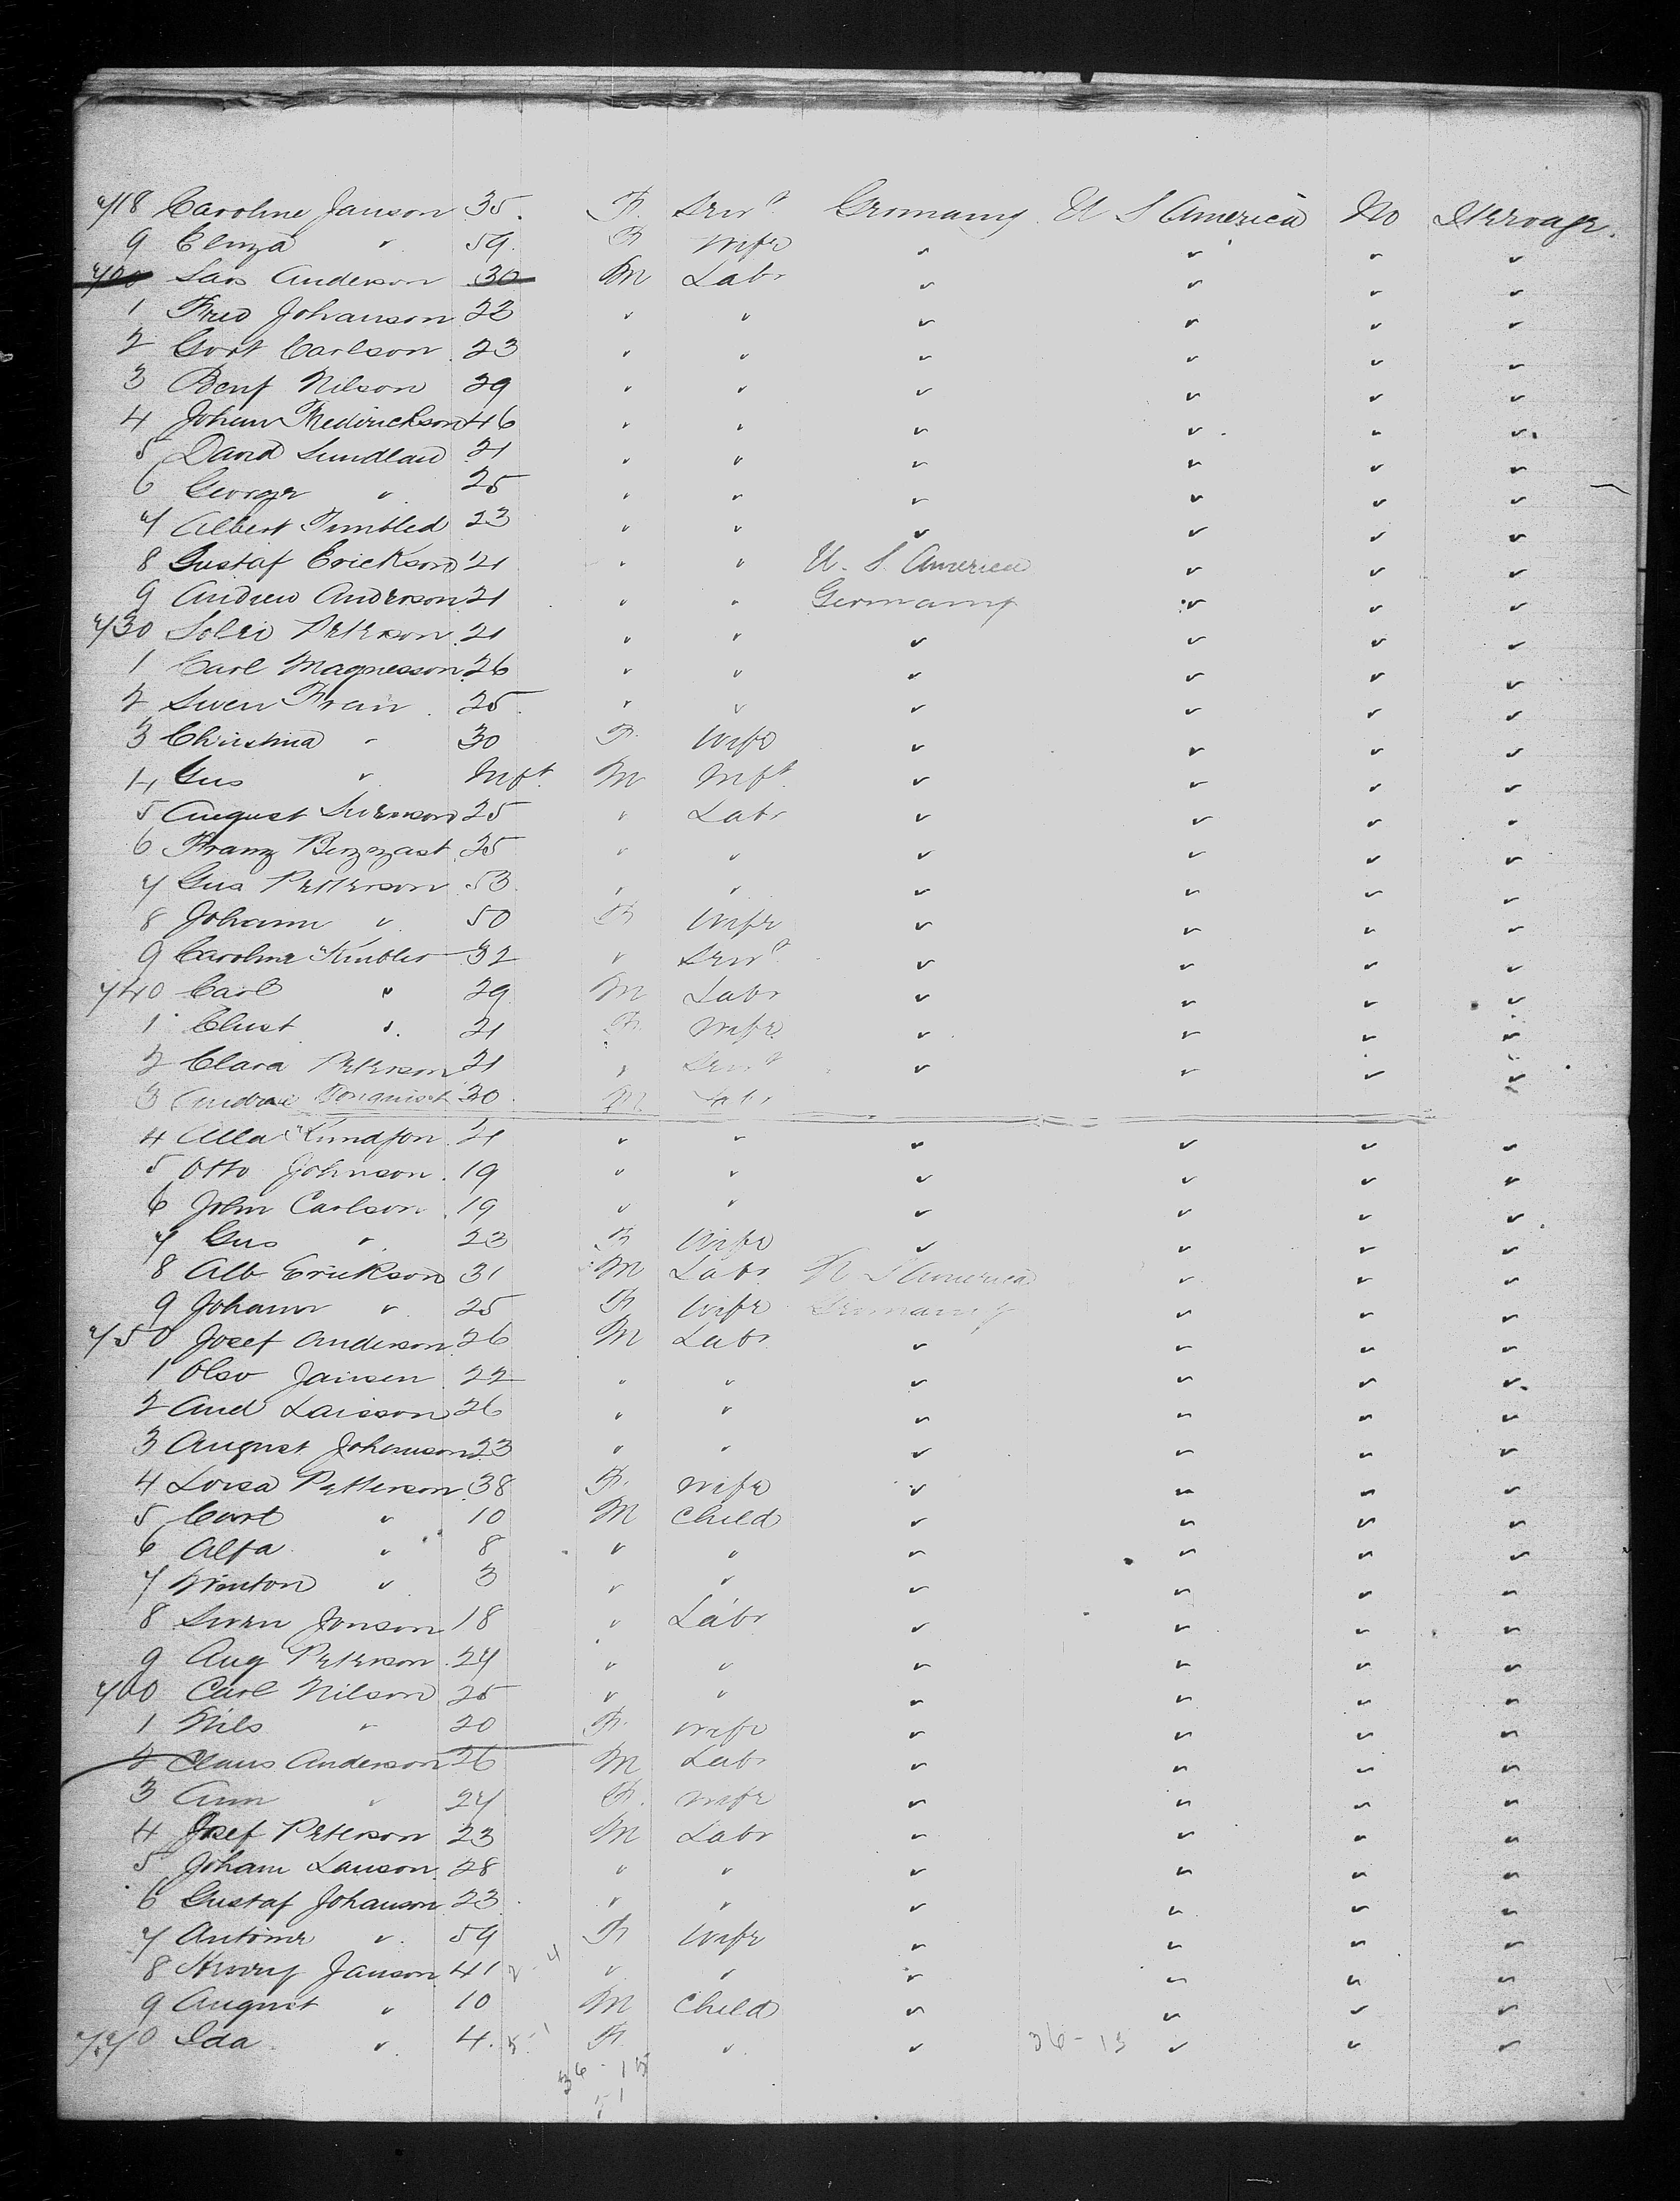 718 Caroline Janson 35. F. Serv^t. Germany U S America No Steerage.
9 Eliza " 59. F Wife " " " "
720 Lars Anderson 30 M Labr " " " "
1 Fred Johanson 22 " " " " " "
2 Gort Carlson 23 " " " " " "
3 Benf Nilson 29 " " " " " "
4 Johan Fredirickson 46 " " " " " "
5 David Lundlad 21 " " " " " "
6 George " 25 " " " " " "
7 Albert 23 " " " " " "
8 Gustaf Erickson 21 " " U. S. America " " "
9 Andrew Anderson 21 " " Germany " " "
730 Peterson 21 " " " " " "
1 Carl Magnesson 26 " " " " " "
2 Swen Fran 25 " " " " " "
3 Christina " 30 F. Wife " " " "
4 Gus " Inft. M Inft. " " " "
5 August Swenson 25 " Labr " " " "
6 Franz 25 " " " " " "
7 Gus Petterson 53 " " " " " "
8 Johann " 50 F Wife " " " "
9 Caroline 32 " Serv^t " " " "
740 Carl " 29 M Labr " " " "
1 Chust ". 21 F. Wife " " " "
2 Clara Peterson 21 " Serv^t " " " "
3 30 M Labr
4 Alla 21 " " " " " "
5 Otto Johnson 19 " " " " " "
6 John Carlson 19 " " " " " "
7 Gus " 23 F Wife " " " "
8 Alb Erickson 31 M Labr U S America " " "
9 Johann " 25 F Wife Germany " " "
750 Josef Anderson 26 M Labr " " " "
1 Olso Jansen 22 " " " " " "
2 And Laisson 26 " " " " " "
3 August Johanson 23 " " " " " "
4 Lovsa Petterson 38 F. Wife " " " "
5 Curt " 10 M Child " " " "
6 Alfa " 8 " " " " " "
7 Winton " 3 " " " " " "
8 Swen Jonson 18 " Labr " " " "
9 Aug Peterson 27 " " " " " "
760 Carl Nilson 25 " " " " " "
1 Nils " 20 F. Wife " " " "
2 Claus Anderson 26 M Labr " " " "
3 Ann " 27 F. Wife " " " "
4 Josef Peterson 23 M Labr " " " "
5 Joham Lauson 28 " " " " " "
6 Gustaf Johanson 23 " " " " " "
7 Antone " 59 F Wife " " " "
8 Janson 41 " " " " " "
9 August " 10 M Child " " " "
770 Ida " 4. F. " " 36-13 " " "
36-15
51